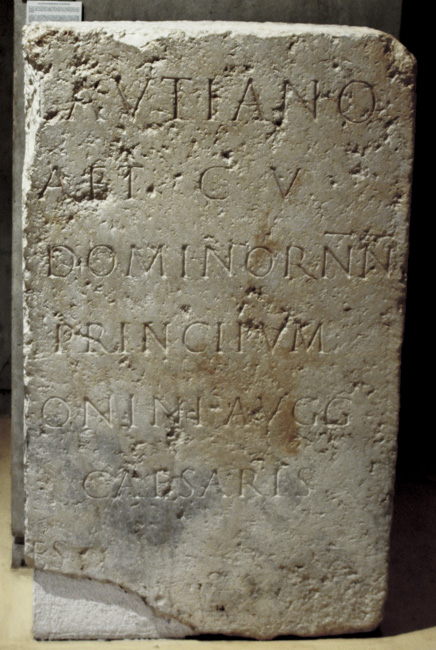 AVTIANO
C V
DOMINORNN
PRINCIPVM
ONINI AVGG
CAESARIS